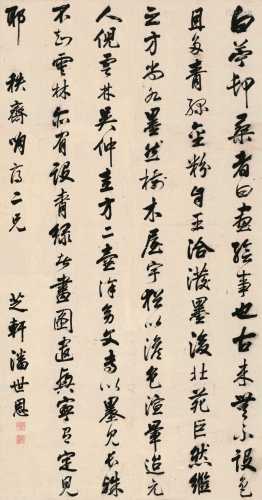 白苧邨桑者曰畫繪事也古来無不設色
且多青綠金粉自王洽潑墨後北苑巨然繼
之方尚水墨然樹木屋宇猶以澹色渲暈迨元
人倪雲林吳仲圭方〻壺徐幼文專以墨見長殊
不知雲林亦有設青綠者畫圖遣興寧有定見
耶 秩齋明府二兄 芝軒潘世恩